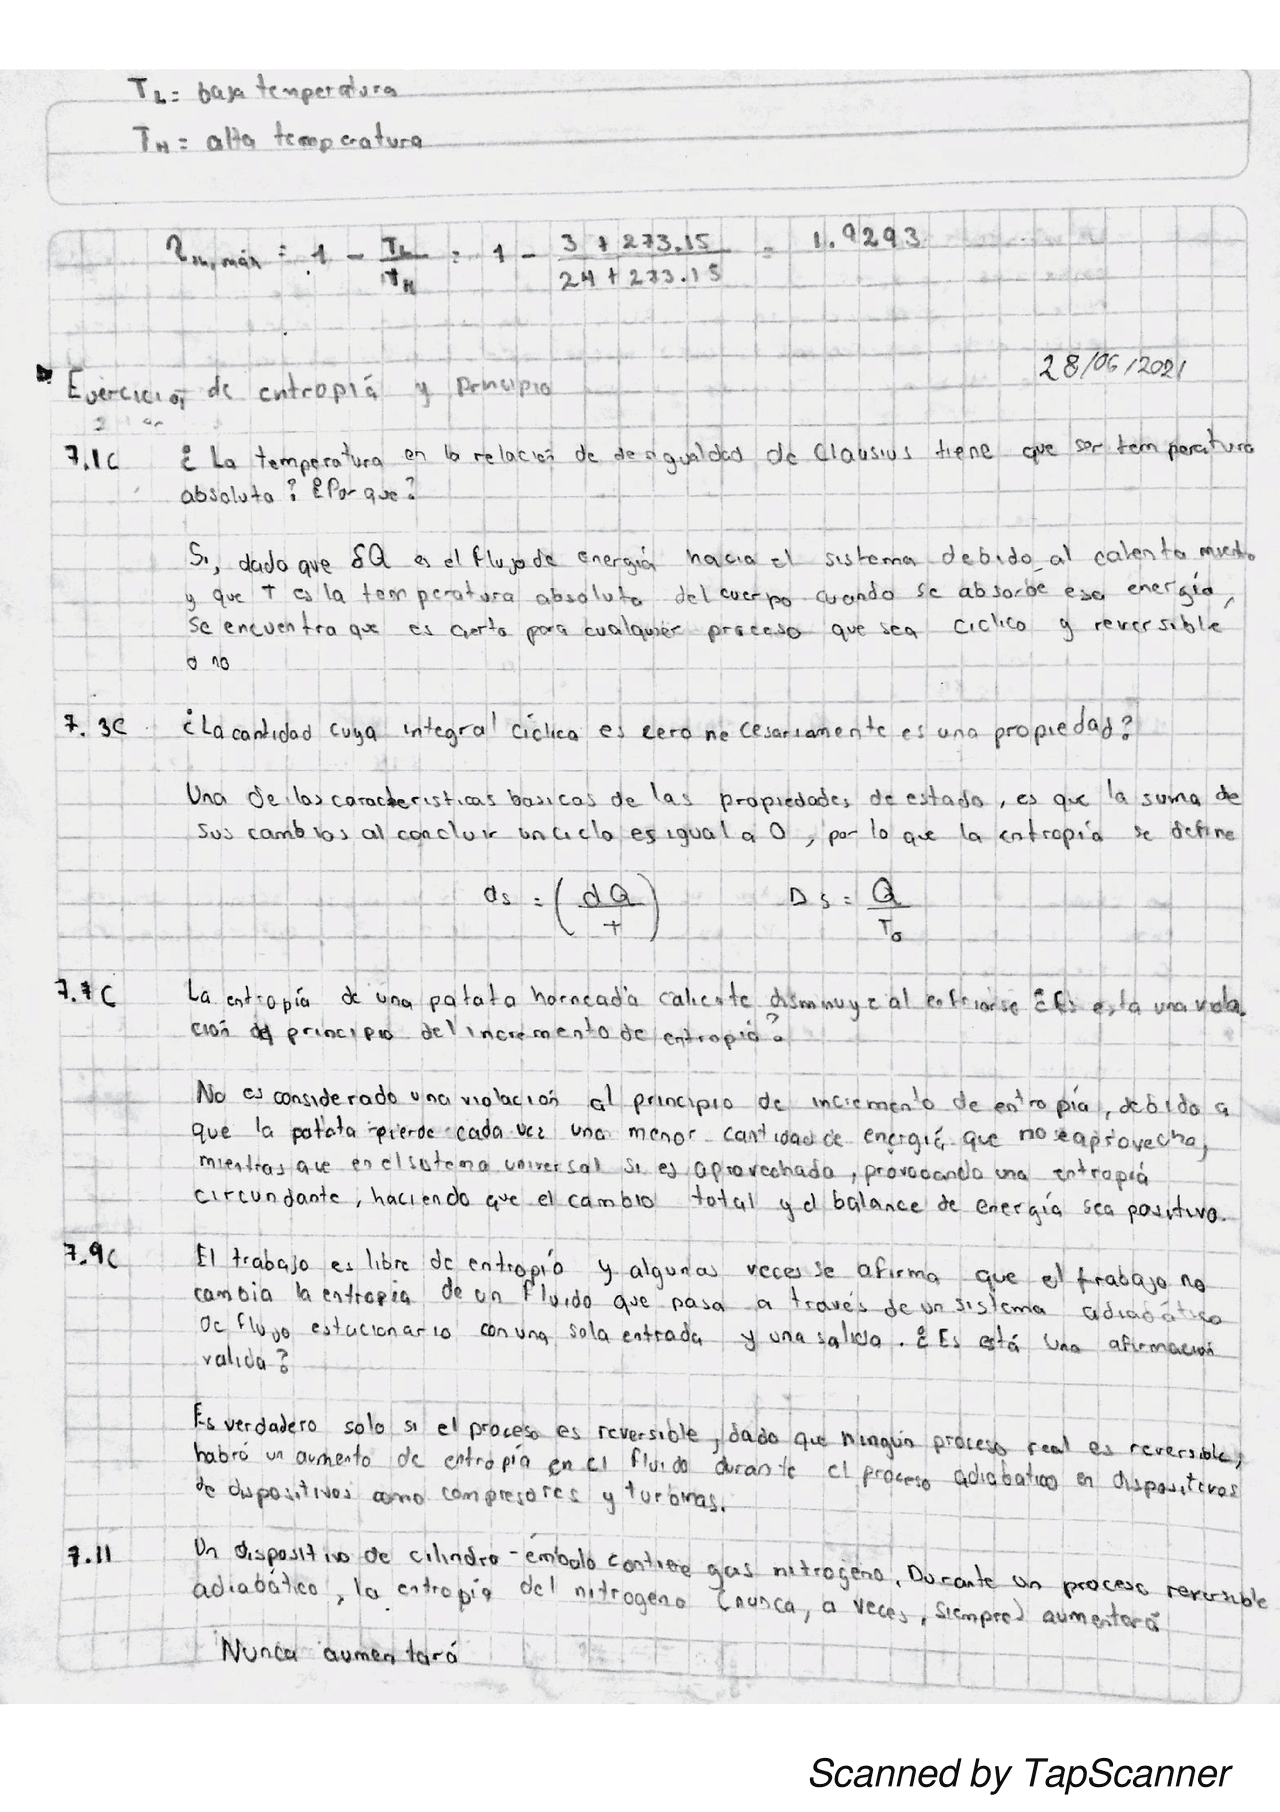 TL = baja temperatura
TH = alta temperatura
ηter, máx = 1 - TL/TH = 1 - (3 + 273.15)/(24 + 273.15) = 1.9293
28/06/2021
de entropía y principio
7.1C ¿La temperatura en la relación de desigualdad de Clausius tiene que ser temperatura
absoluta? ¿Por que?
Si, dado que δQ es el flujo de energía hacia el sistema debido al calentamiento
y que T es la temperatura absoluta del cuerpo cuando se absorbe esa energía,
Se encuentra que es cierto para cualquier proceso que sea ciclico y reversible
o no
7.3C ¿La cantidad cuya integral cíclica es cero necesariamente es una propiedad?
Una de las caracteristicas basicas de las propiedades de estado, es que la suma de
sus cambios al concluir un ciclo es igual a 0, por lo que la entropía se define
ds = (dQ/T) Ds = Q/To
7.7C La entropía de una patata horneada caliente disminuye al enfriarse ¿Es esta una viola
ción principio del incremento de entropía?
No es considerado una violación al principio de incremento de entropía, debido a
que la patata pierde cada vez una menor cantidad de energía que no se aprovecha,
mientras que en el sistema universal si es aprovechada, provocando una entropía
circundante, haciendo que el cambio total y el balance de energía sea positivo.
7.9C El trabajo es libre de entropía y algunas veces se afirma que el trabajo no
cambia la entropía de un fluido que pasa a través de un sistema adiabático
de flujo estacionario con una sola entrada y una salida. ¿Es está una afirmación
valida?
Es verdadero solo si el proceso es reversible, dado que ningún proceso real es reversible,
habrá un aumento de entropía en el fluido durante el proceso adiabatico en dispositivos
de dispositivos como compresores y turbinas.
7.11 Un dispositivo de cilindro-émbolo contiene gas nitrogeno. Durante un proceso reversible
adiabático, la entropía del nitrogeno (nunca, a veces, siempre) aumentará
Nunca aumentará
Scanned by TapScanner